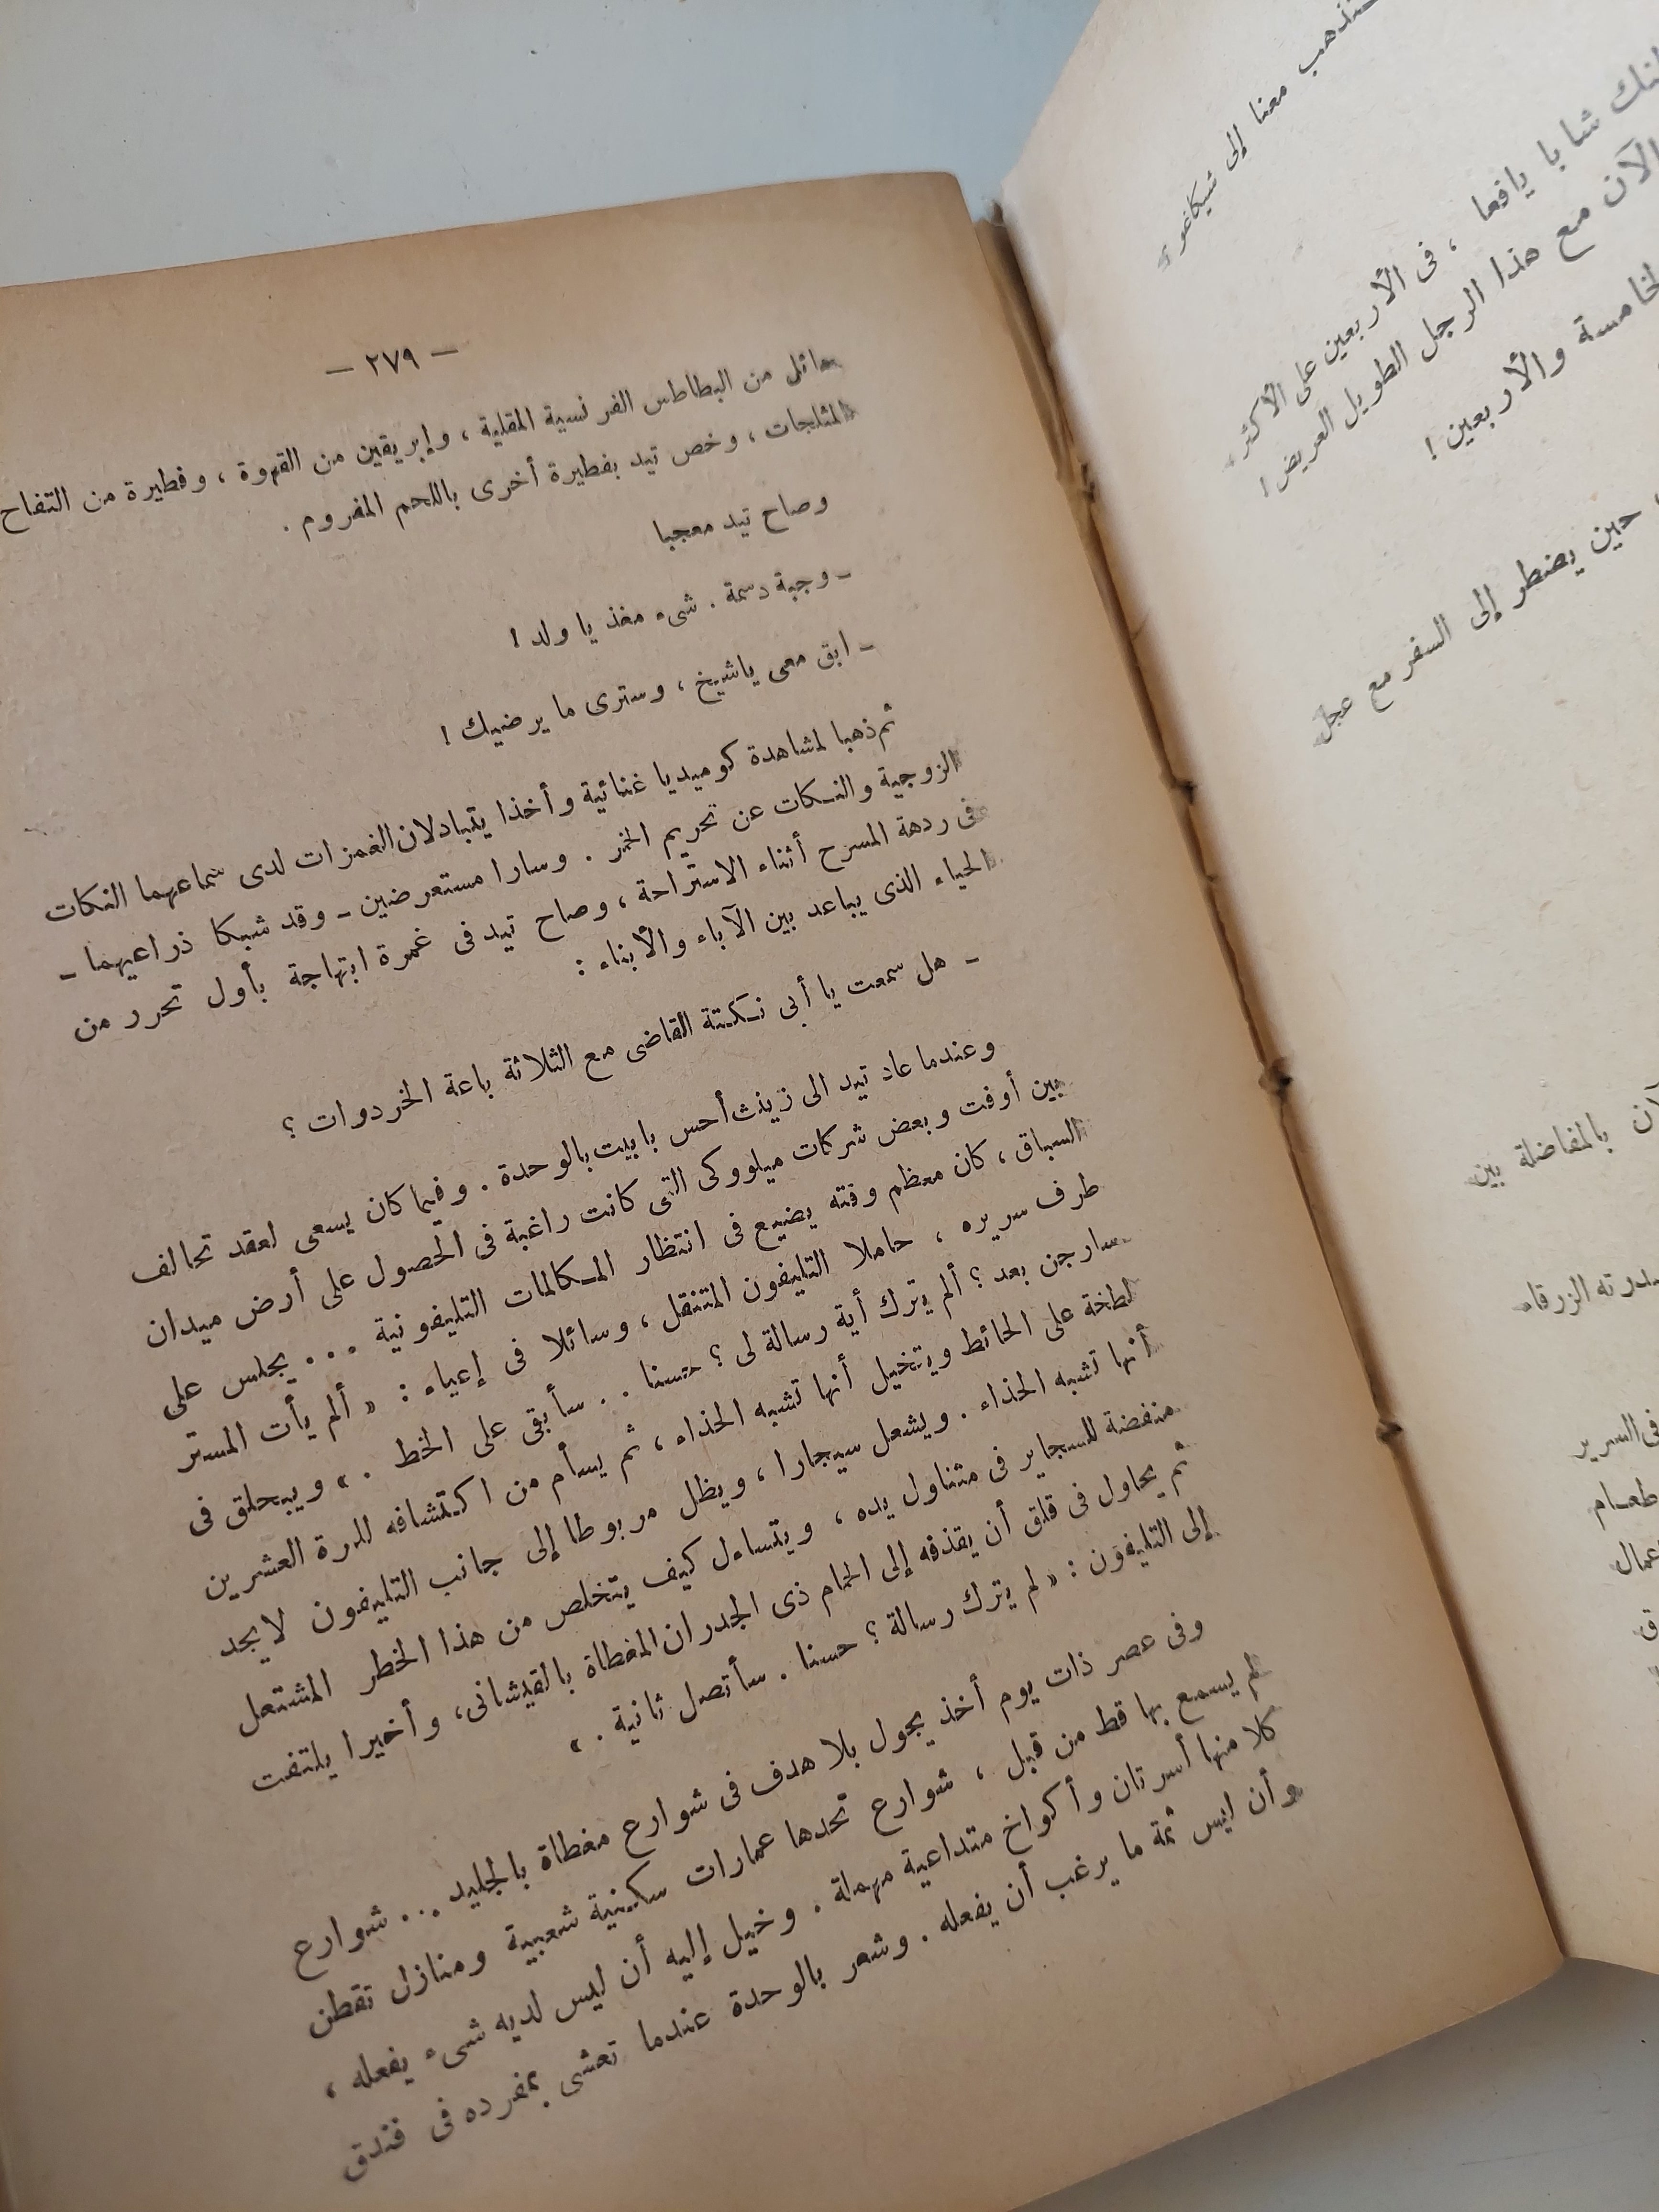 ستذهب معنا إلى شيكاغو ؟
شابا يافعا ، فى الأربعين على الأكثر .
الآن مع هذا الرجل الطويل العريض !
والأربعين !
حين يضطر إلى السفر مع عجل
بالمفاضلة بين
الزرقاء
فى السرير
طعام
— ٢٧٩ —
هائل من البطاطس الفرنسية المقلية ، وإبريقين من القهوة ، وفطيرة من التفاح
المثلجات ، وخص تيد بفطيرة أخرى باللحم المفروم .
وصاح تيد معجبا
– وجبة دسمة . شىء مغذ يا ولد !
– ابق معى ياشيخ ، وسترى ما يرضيك !
ثم ذهبا لمشاهدة كوميديا غنائية وأخذا يتبادلان الغمزات لدى سماعهما النكات
الزوجية والنكات عن تحريم الخمر . وسارا مستعرضين – وقد شبكا ذراعيهما –
فى ردهة المسرح أثناء الاستراحة ، وصاح تيد فى غمرة ابتهاجة بأول تحرر من
الحياء الذى يباعد بين الآباء والأبناء :
– هل سمعت يا أبى نكتة القاضى مع الثلاثة باعة الخردوات ؟
وعندما عاد تيد الى زينث أحس بابيت بالوحدة . وفيما كان يسعى لعقد تحالف
بين أوفت وبعض شركات ميلووكى التى كانت راغبة فى الحصول على أرض ميدان
السباق ، كان معظم وقته يضيع فى انتظار المكالمات التليفونية ... يجلس على
طرف سريره ، حاملا التليفون المتنقل ، وسائلا فى إعياء : « ألم يأت المستر
سارجن بعد ؟ ألم يترك أية رسالة لى ؟ حسنا .. سأبقى على الخط . » ويبحلق فى
لطخة على الحائط ويتخيل أنها تشبه الحذاء ، ثم يسأم من اكتشافه للمرة العشرين
أنها تشبه الحذاء . ويشعل سيجارا ، ويظل مربوطا إلى جانب التليفون لايجد
منفضة للسجاير فى متناول يده ، ويتساءل كيف يتخلص من هذا الخطر المشتعل
ثم يحاول فى قلق أن يقذفه إلى الحمام ذى الجدران المغطاة بالقيشانى ، وأخيرا يلتفت
إلى التليفون : « لم يترك رسالة ؟ حسنا . سأتصل ثانية . »
وفى عصر ذات يوم أخذ يجول بلا هدف فى شوارع مغطاة بالجليد ... شوارع
لم يسمع بها قط من قبل ، شوارع تحدها عمارات سكنية شعبية ومنازل تقطن
كلا منها أسرتان وأكواخ متداعية مهملة . وخيل إليه أن ليس لديه شىء يفعله ،
وأن ليس ثمة ما يرغب أن يفعله . وشعر بالوحدة عندما تعشى بمفرده فى فندق